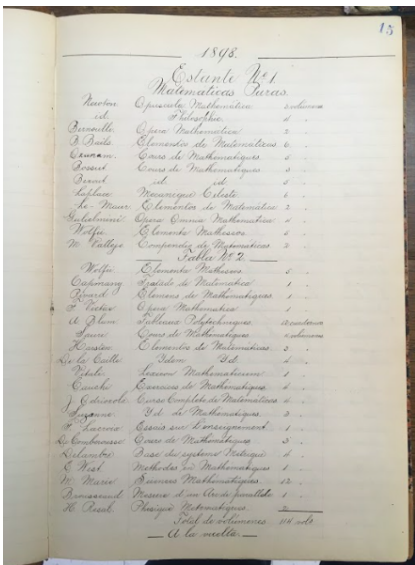 15
1898.
Estante Nº 1
Matematicas Puras.
Newton Opuscula Mathematica 3 volumenes
id. Philosophie
Bernoulle Opera Mathematica 2 "
B. Bails Elementos de Matemáticas 6 "
Ozanam. Cours de Mathematiques 5 "
Bossut Cours de Mathematiques 3 "
Bezout id id 5 "
Laplace Mecanique Celeste
Le-Meur Elementos de Matemática 2 "
Gulielmini Opera Omnia Mathematica
Wolfii Elementa Matheseos 5 "
M. Vallejo Compendio de Matematicas 2 "
Tabla Nº 2.
Wolfii Elementa Matheseos 5 "
Tratado de Matematica 1 "
Elemens de Mathematiques 1 "
F. Vieta Opera Mathematica 1 "
A. Blum Tableaux Polytechniques
Cours de Mathematiques
Elementos de Matematicas 3 "
De la Caille Idem Id 1 "
Vitale Mathematicum 1 "
Cauchi Exercices de Mathematiques
J. Odriozola Curso Completo de Matemáticas 4 "
Suzanne Id de Mathematiques 3 "
F. Lacroix Essais sur L'enseignement 1 "
De Comberousse Cours de Mathématiques 3 "
Delambre Base du systeme Metrique
E. West Methodes en Mathematiques 1 "
M. Marie Sciences Mathématiques 12 "
Mesure d'un Arc de parallele 1 "
H. Resal Physique Matematiques 2
Total de volumenes 114 vols
A la vuelta